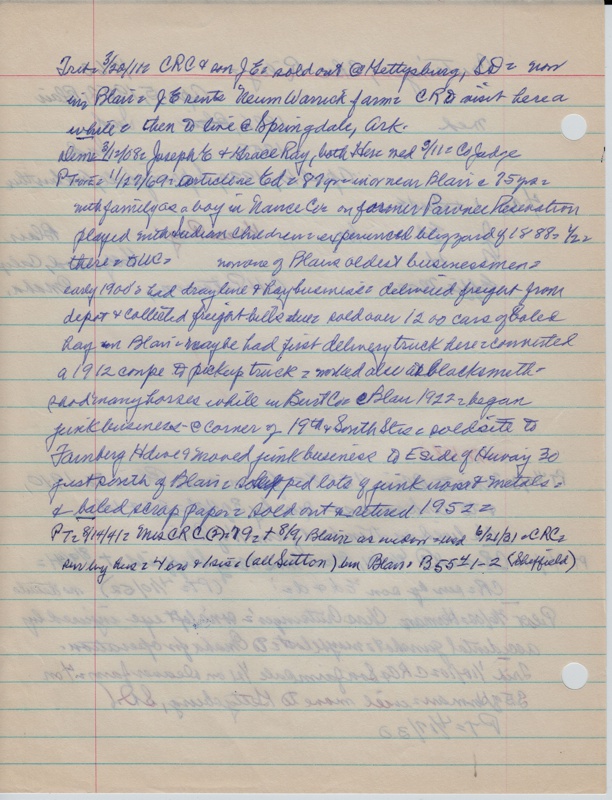 Trib= 3/20/11= CRC & son J E= sold out @ Gettysburg, SD= now
in Blair= J E rents Neum Warrick farm= CR to visit here a
while= then to live @ Springdale, Ark.
Dem= 3/12/08= Joseph E & Grace Ray, both Her= med 3/11= Co Judge
P T= 11/27/69= article Ed= 87 yrs= in or near Blair= 75 yrs=
with family as a boy in Nance Co= on former Pawnee Reservation
played with Indian children= experienced blizzard of 1888=
there= to WC= now one of Blairs oldest businessmen=
early 1900s= had drayline & Hay business= delivered freight from
depot & collected freight bills due= sold over 1200 cars of baled
Hay in Blair= maybe had first delivery truck here= converted
a 1912 coupe to pickup truck= worked also at blacksmith=
shod many horses while in Burt Co= @ Blair 1922= began
junk business= @ corner of 19th & South Sts= sold site to
Farnberg Hdwe & moved junk business to E side of Hiway 30
just south of Blair= shipped lots of junk iron & metals=
& baled scrap paper= sold out & retired 1952=
P T= 8/14/41= Mrs CRC @ 79= + 8/9, Blair= as widow= wed 6/21/31= CRC=
surv by hus= 4 bro & 1 sis= (all Sutton) bur Blair= B 55 71-2 (Sheffield)